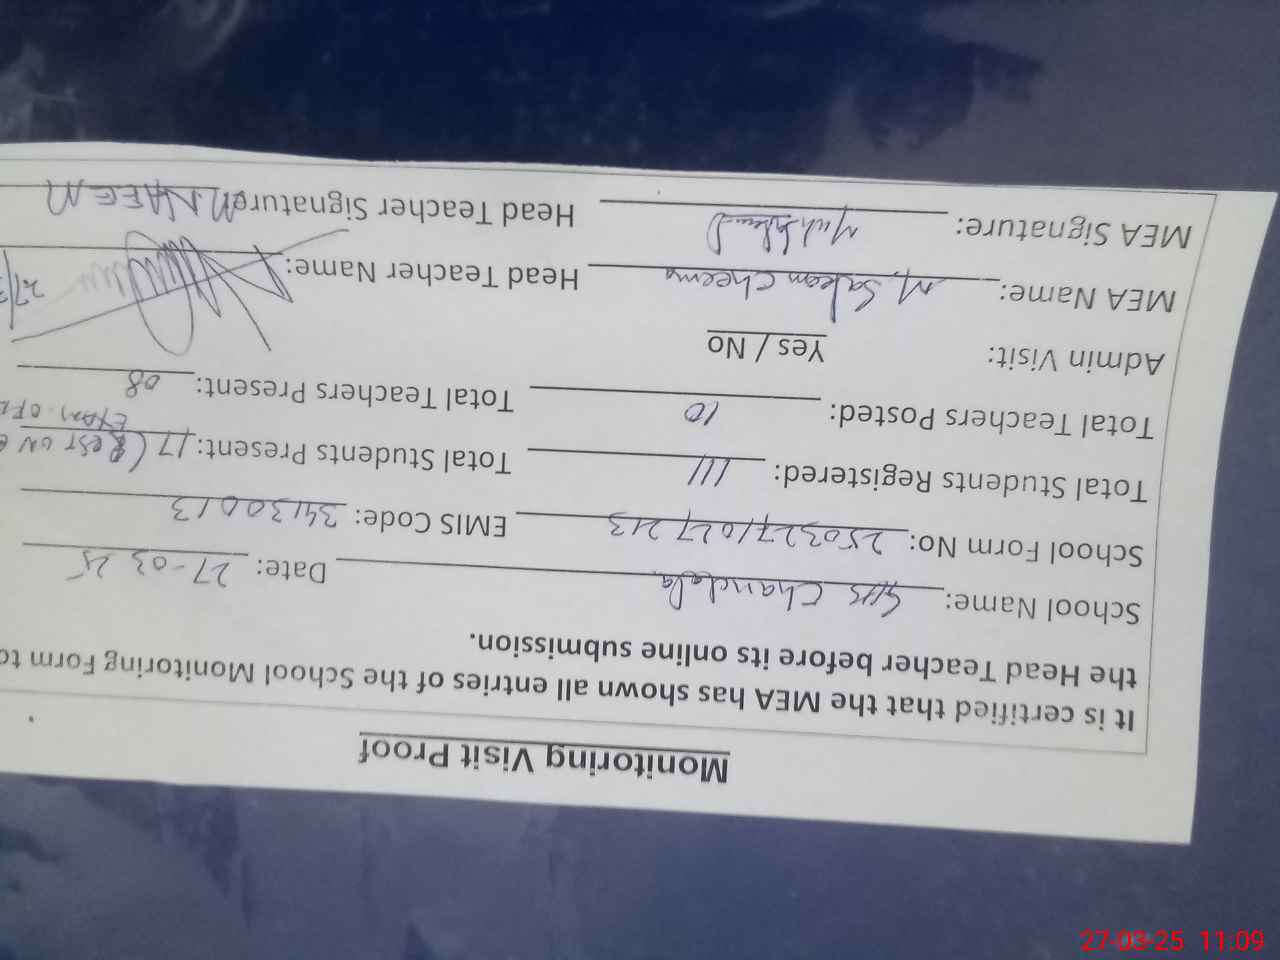 Monitoring Visit Proof
It is certified that the MEA has shown all entries of the School Monitoring Form to
the Head Teacher before its online submission.
School Name: GHS Chandala Date: 27-03-25
School Form No: 250327/027213 EMIS Code: 34130013
Total Students Registered: 111 Total Students Present: 17 (Rest on
Exam.
Total Teachers Posted: 10 Total Teachers Present: 08
Admin Visit: Yes / No
MEA Name: M. Saleem Cheema Head Teacher Name:
MEA Signature: Head Teacher Signature M NAEEM
27-03-25 11:09